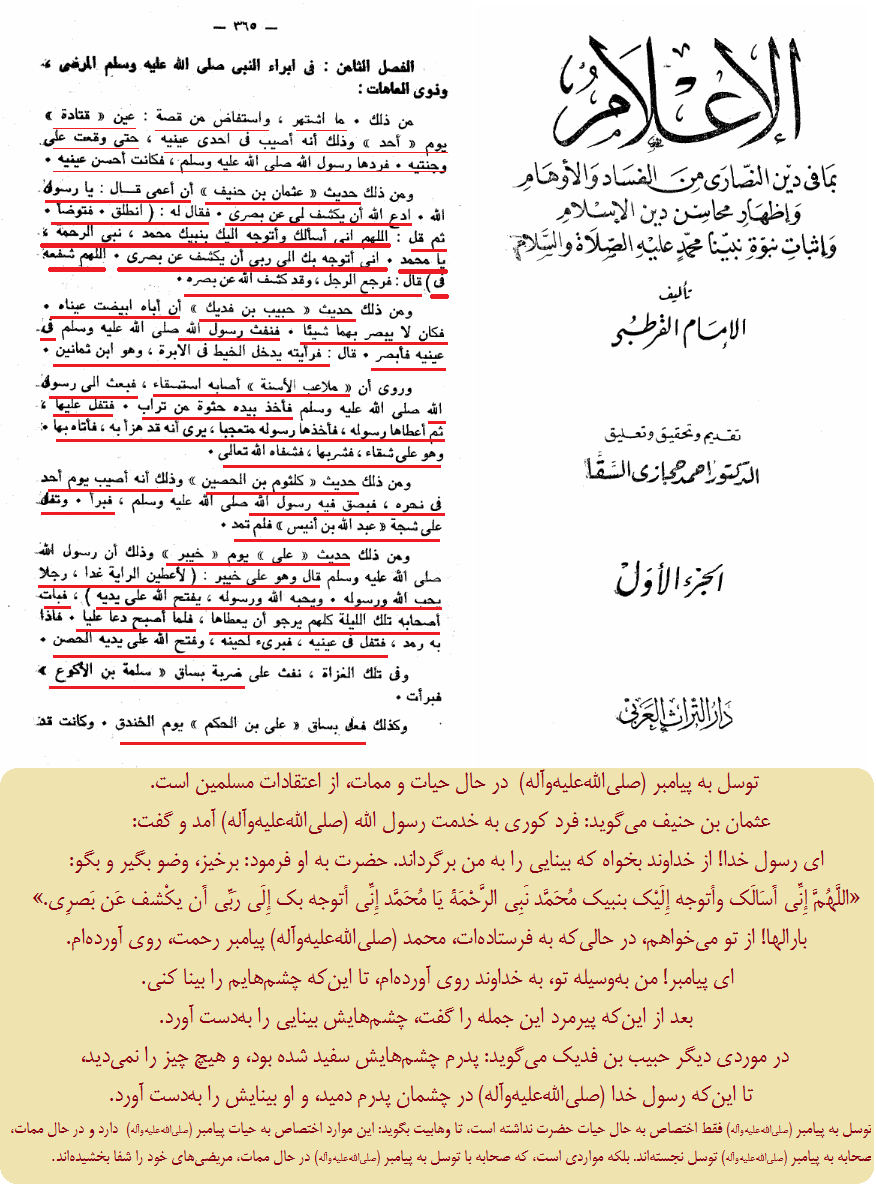 الإعلام
بما في دين النصارى من الفساد والأوهام
وإظهار محاسن دين الإسلام
وإثبات نبوة نبينا محمد عليه الصلاة والسلام
تأليف
الإمام القرطبي
تقديم وتحقيق وتعليق
الدكتور احمد حجازى السقا
الجزء الأول
دار التراث العربي
— ٣٦٥ —
الفصل الثامن : فى ابراء النبى صلى الله عليه وسلم المرضى ،
وذوى العاهات :
من ذلك ٠ ما اشتهر ، واستفاض من قصة : عين « قتادة »
يوم « أحد » وذلك أنه أصيب فى احدى عينيه ، حتى وقعت على
وجنتيه ٠ فردها رسول الله صلى الله عليه وسلم ، فكانت أحسن عينيه ٠
ومن ذلك حديث « عثمان بن حنيف » أن أعمى قال : يا رسول
الله ٠ ادع الله أن يكشف لى عن بصرى ٠ فقال له : ( انطلق ٠ فتوضأ ٠
ثم قل : اللهم انى أسألك وأتوجه اليك بنبيك محمد ، نبى الرحمة ،
يا محمد ٠ انى أتوجه بك الى ربى أن يكشف عن بصرى ٠ اللهم شفعه
فى ) قال : فرجع الرجل ، وقد كشف الله عن بصره ٠
ومن ذلك حديث « حبيب بن فديك » أن أباه ابيضت عيناه ٠
فكان لا يبصر بهما شيئا ٠ فنفث رسول الله صلى الله عليه وسلم فى
عينيه فأبصر ٠ قال : فرأيته يدخل الخيط فى الابرة ، وهو ابن ثمانين ٠
وروى أن « ملاعب الأسنة » أصابه استسقاء ، فبعث الى رسول
الله صلى الله عليه وسلم فأخذ بيده حثوة من تراب ٠ فتفل عليها ،
ثم أعطاها رسوله ، فأخذها رسوله متعجبا ، يرى أنه قد هزأ به ، فأتاه بها ٠
وهو على شقاء ، فشربها ، فشفاه الله تعالى ٠
ومن ذلك حديث « كلثوم بن الحصين » وذلك أنه أصيب يوم أحد
فى نحره ، فبصق فيه رسول الله صلى الله عليه وسلم ، فبرأ ٠ وتفل
على شجة « عبد الله بن أنيس » فلم تمد ٠
ومن ذلك حديث « على » يوم « خيبر » وذلك أن رسول الله
صلى الله عليه وسلم قال وهو على خيبر : ( لأعطين الراية غدا ، رجلا
يحب الله ورسوله ٠ ويحبه الله ورسوله ، يفتح الله على يديه ) ، فبات
أصحابه تلك الليلة كلهم يرجو أن يعطاها ، فلما أصبح دعا عليا ٠ فاذا
به رمد ، فتفل فى عينيه ، فبرىء لحينه ، وفتح الله على يديه الحصن ٠
وفى تلك الغزاة ، نفث على ضربة بساق « سلمة بن الأكوع »
فبرأت ٠
وكذلك فعل بساق « على بن الحكم » يوم الخندق ٠ وكانت قد
توسل به پیامبر (صلی‌الله‌علیه‌وآله) در حال حیات و ممات، از اعتقادات مسلمین است.
عثمان بن حنیف می‌گوید: فرد کوری به خدمت رسول الله (صلی‌الله‌علیه‌وآله) آمد و گفت:
ای رسول خدا! از خداوند بخواه که بینایی را به من برگرداند. حضرت به او فرمود: برخیز، وضو بگیر و بگو:
«اللهُمَّ إِنِّی أَسَالَک وأتوجه إِلَیْک بنبیک مُحَمَّد نَبِی الرَّحْمَهْ یَا مُحَمَّد إِنِّی أتوجه بک إِلَی رَبِّی أَن یکْشف عَن بَصَرِی.»
بارالها! از تو می‌خواهم، در حالی‌که به فرستاده‌ات، محمد (صلی‌الله‌علیه‌وآله) پیامبر رحمت، روی آورده‌ام.
ای پیامبر! من به‌وسیله تو، به خداوند روی آورده‌ام، تا این‌که چشم‌هایم را بینا کنی.
بعد از این‌که پیرمرد این جمله را گفت، چشم‌هایش بینایی را به‌دست آورد.
در موردی دیگر حبیب بن فدیک می‌گوید: پدرم چشم‌هایش سفید شده بود، و هیچ چیز را نمی‌دید،
تا این‌که رسول خدا (صلی‌الله‌علیه‌وآله) در چشمان پدرم دمید، و او بینایش را به‌دست آورد.
توسل به پیامبر (صلی‌الله‌علیه‌وآله) فقط اختصاص به حال حیات حضرت نداشته است، تا وهابیت بگوید: این موارد اختصاص به حیات پیامبر (صلی‌الله‌علیه‌وآله) دارد و در حال ممات،
صحابه به پیامبر (صلی‌الله‌علیه‌وآله) توسل نجسته‌اند. بلکه مواردی است، که صحابه با توسل به پیامبر (صلی‌الله‌علیه‌وآله) در حال ممات، مریضی‌های خود را شفا بخشیده‌اند.